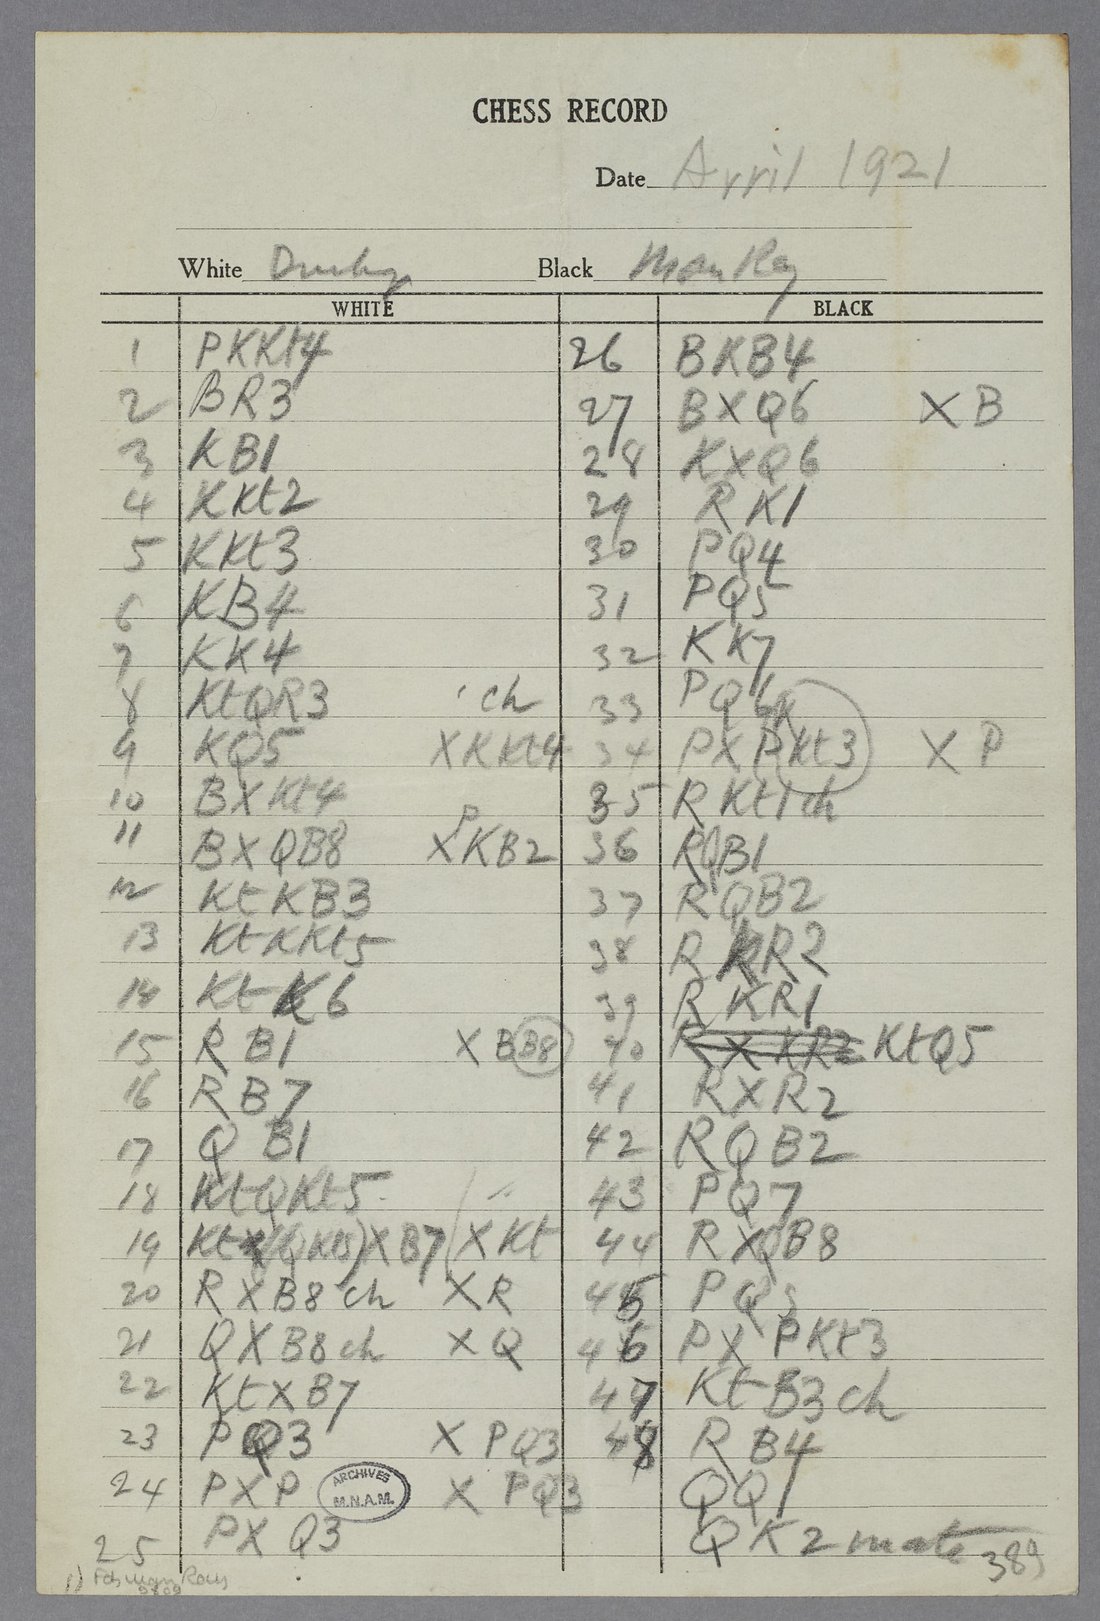 CHESS RECORD
Date April 1921
White Black Man Ray
WHITE BLACK
1 PKKt4 26 BKB4
2 BR3 27 BXQ6 X B
3 KB1 28 KXQ6
4 KKt2 29 R K1
5 KKt3 30 PQ4
6 KB4 31 PQ5
7 KK4 32 KK7
8 KtQR3 ch 33 PQ6
9 KQ5 XKKt4 34 PXPKt3 X P
10 BXKt4 35 RKt1ch
11 BXQB8 XPKB2 36 RQB1
12 KtKB3 37 RQB2
13 KtKKt5 38 R KR2
14 Kt K6 39 R KR1
15 R B1 X BB8 40 R X KR2 KtQ5
16 R B7 41 RXR2
17 Q B1 42 RQB2
18 KtQKt5 43 PQ7
19 KtX(QKt5)XB7 / X Kt 44 RXQB8
20 RXB8 ch X R 45 PQ
21 QXB8 ch X Q 46 PX PKt3
22 KtXB7 47 Kt B3 ch
23 PQ3 X PQ3 48 R B4
24 PXP ARCHIVES M.N.A.M. X PQ3 QQ1
25 PX Q3 QK2 mate
389
1) Man Ray